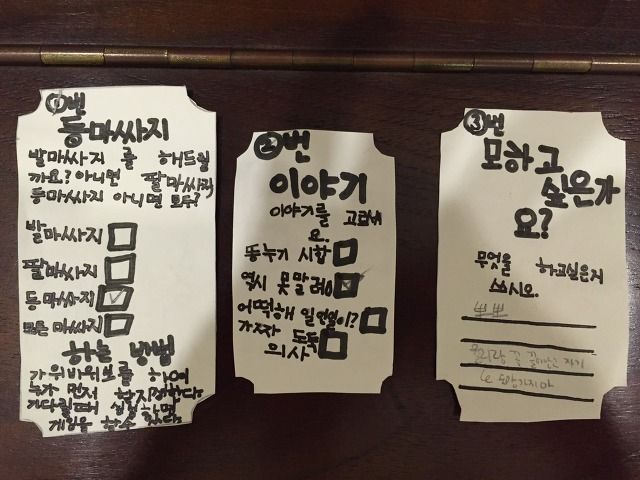 ①번
등마싸지
발마싸지를 해드릴
까요? 아니면 팔마싸지
등마싸지 아니면 모두?
발마싸지
팔마싸지
등마싸지
모든 마싸지
하는 방법
가위바위보를 하여
누가 먼저 할지정한다.
기다릴때 심심하면
게임을 할수 있다.
②번
이야기
이야기를 고르세
요.
똥누기 시합
역시 못말려
어떡해 일 이?
가짜 도둑
의사
③번
모하고
싶은가
요?
무엇을 하고싶은지
쓰시오.
뽀뽀
꼭 자기